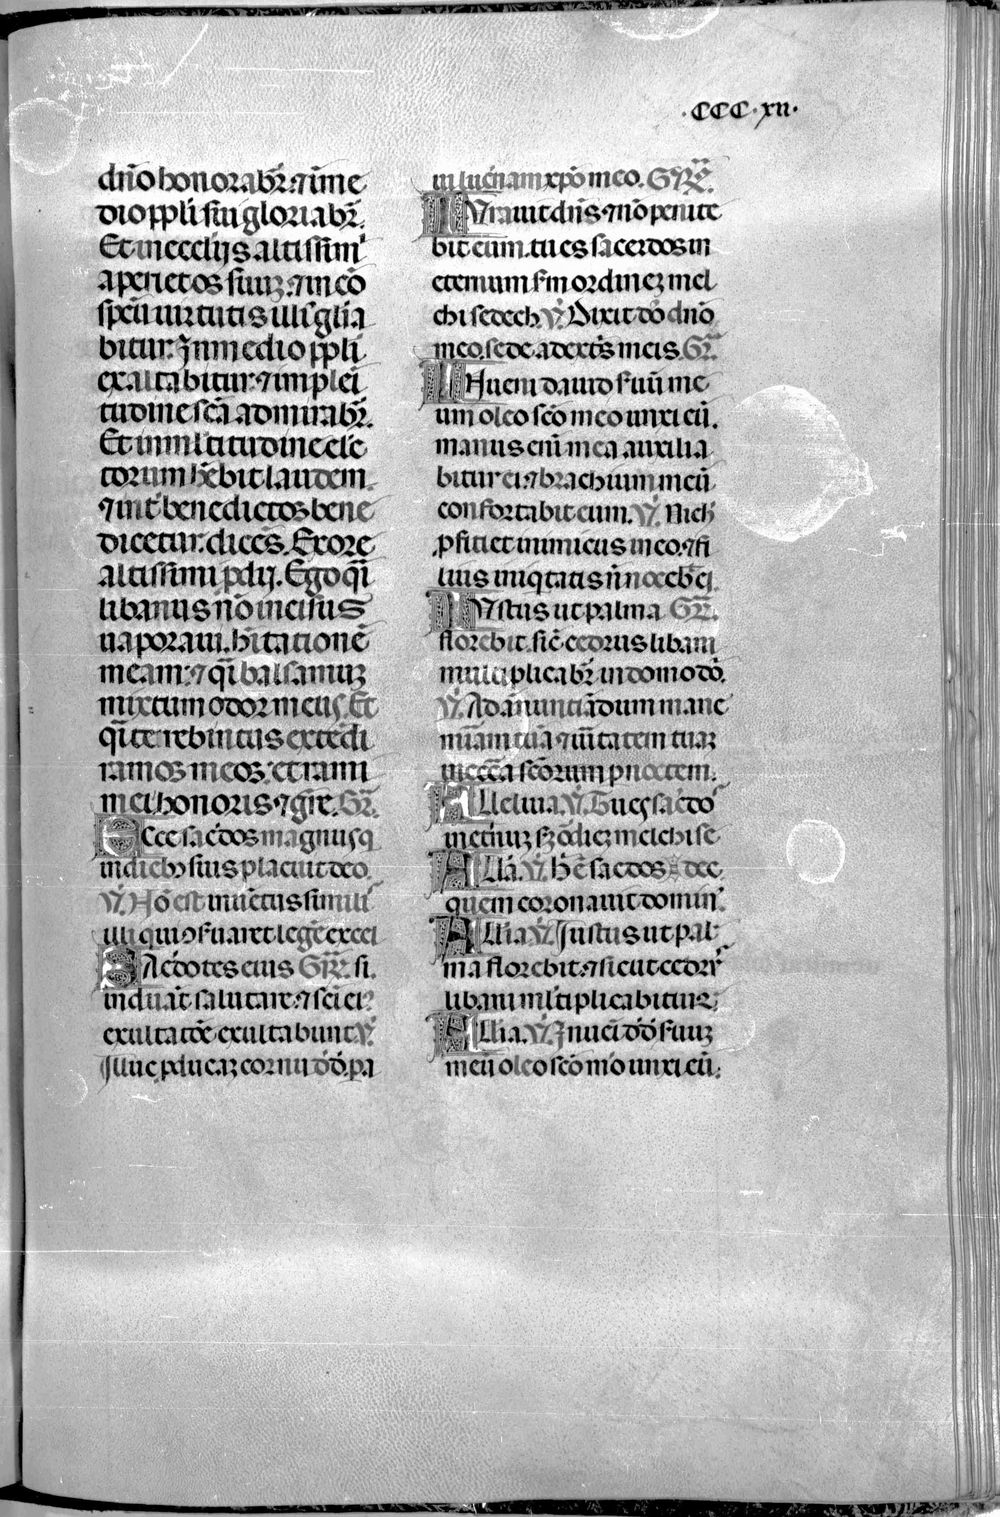 ·CCC·xii·
dño honorabr̃.⁊ i me
dio ppli sui gloriabr̃.
Et in ecclijs altissimi
aperiet os suuz.⁊ in cõ
spcũ uirtutis illiꝰ glia
bitur. In medio ppli
exaltabitur.⁊ in plei
tudine scã admirabr̃.
Et in mltitudine elc̃
torum hẽbit laudem.
⁊ int̃ benedictos bene
dicetur. dicẽs. Ex ore
altissimi pdij. Ego qĩ
libanus nõ incisus
uaporaui. hĩtationẽ
meam.⁊ qĩ balsamuz
mixtum odor meus. Et
qĩ terebintus extẽdi
ramos meos. et rami
mei honoris ⁊ grẽ. Gr̃.
Ecce sac̃dos magnus q
in diebꝫ suis placuit deo.
V̇. Nõ est inuẽtus simili
illi qui ɔseruaret legẽ excel
Sac̃dotes eius Gr̃. si.
induãt salutare.⁊ sci eiꝰ
exultatõe exultabunt. V̇.
Illuc pducaz cornu dd̃. pa
ui lucñam xpõ meo. Gr̃.
Iurauit dñs.⁊ nõ penite
bit eum. tu es sacerdos in
eternum scd̃m ordinez mel
chisedech. V̇. Dixit dõ dnõ
meo. sede a dext̃s meis. Gr̃.
Inueni dauid seruũ me
um oleo scõ meo unxi eũ.
manus eni mea auxilia
bitur ei.⁊ brachium meũ
confortabit eum. V̇. Nich̃
pficiet inimicus in eo.⁊ fi
lius iniqtatis ñ nocebit ei.
Iustus ut palma Gr̃.
florebit. sic̃ cedrus libani
multiplicabr̃ in domo dõ.
V̇. Ad ãnuntiãdum mane
miãm tuã.⁊ uitatem tuaz
in ecclã scõrum p noctem.
Alleluia. V̇. Tu es sac̃dos
in et̃nuz scd̃ ordinez melchise
Allã. V̇. Hic ẽ sac̃dos dec.
quem coronauit domin̾.
Allia. V̇. Justus ut pal
ma florebit.⁊ sicut cedrꝰ
libani mltiplicabitur.
Allia. V̇. Inueni dd̃ seruuz
meũ oleo scõ mõ unxi eũ.